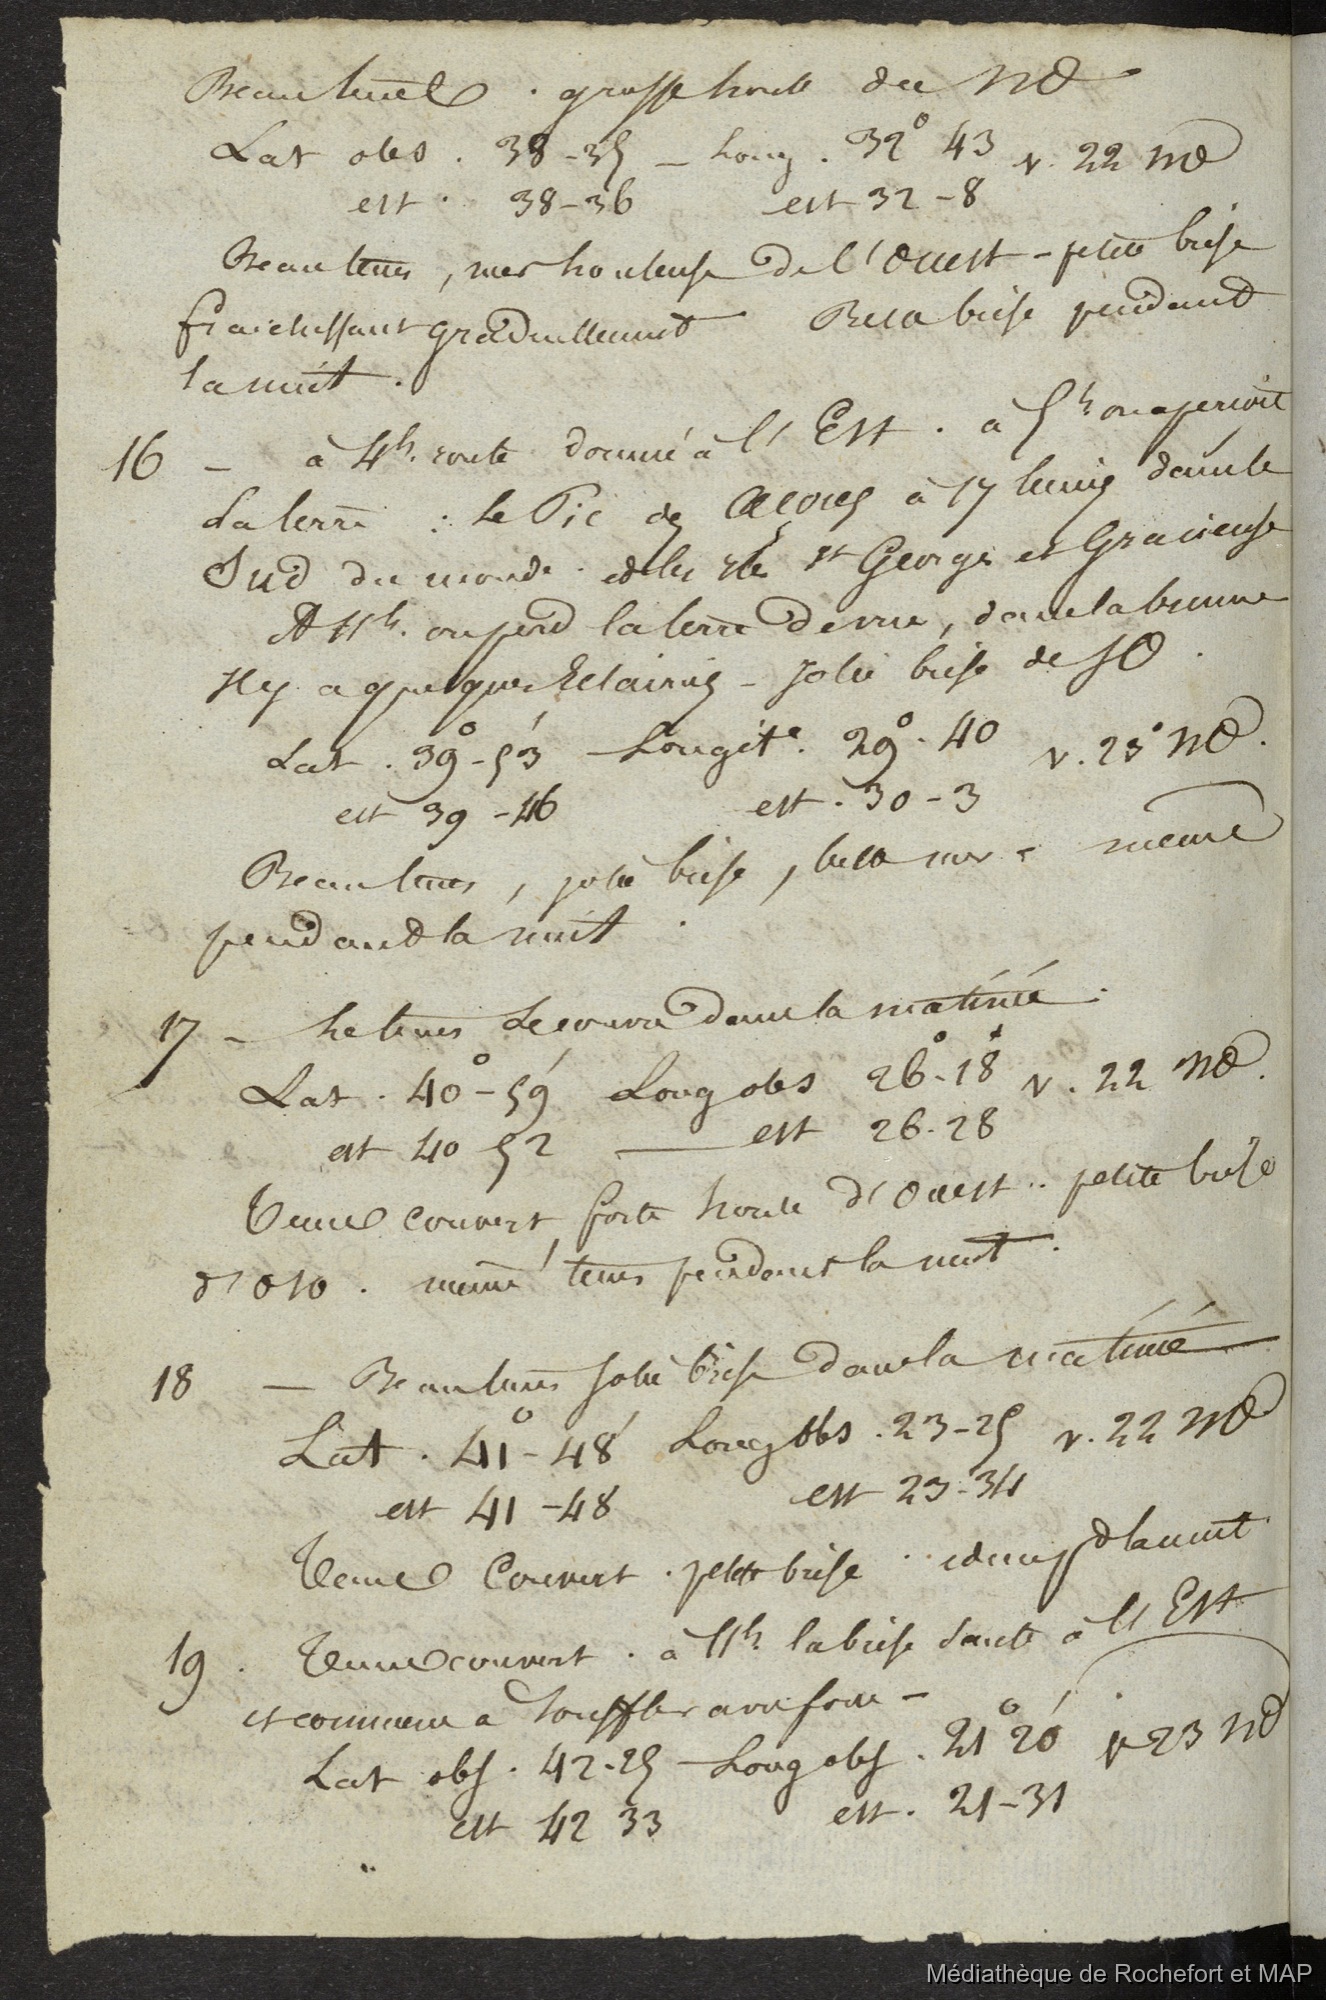 Beau tems . grosse houle du NO
Lat obs . 38-35 – Long . 32° 43 v. 22 NO
est . 38-36 est 32-8
Beau tems, mer houleuse de l'Ouest - petite brise
fraichissant graduellement Belle brise pendant
la nuit .
16 – à 4h. route donné à l'Est . à 5h on aperçoit
la terre : le Pic des Açores à 17 lieues dans le
Sud du monde . et les Iles St George et Gracieuse
A 11h. on perd la terre de vue, dans la brume
Il y a quelques Eclaircies – Jolie brise de SO .
Lat . 39°-53' Longite. 29°. 40 v. 23° NO.
est 39 -46 est . 30-3
Beau tems, jolie brise, belle mer - même
pendant la nuit .
17 – Le tems se couvre dans la matinée .
Lat . 40°-59' Long obs 26°-18' v. 22 NO.
est 40 52 — est 26.28
Tems couvert, forte houle d'Ouest .. petite brise
d'OSO . même tems pendant la nuit .
18 — Beau tems jolie brise dans la matinée
Lat . 41°-48' Long obs . 23-25 v. 22 NO
est 41-48 est 23-34
Tems Couvert . petite brise . idem pdt la nuit
19 . Tems couvert . à 11h. la brise saute à l'Est
et commence à souffler avec force –
Lat obs . 42-25 – Long obs . 21° 20' v 23 NO
est 42 33 est . 21-31
Médiathèque de Rochefort et MAP